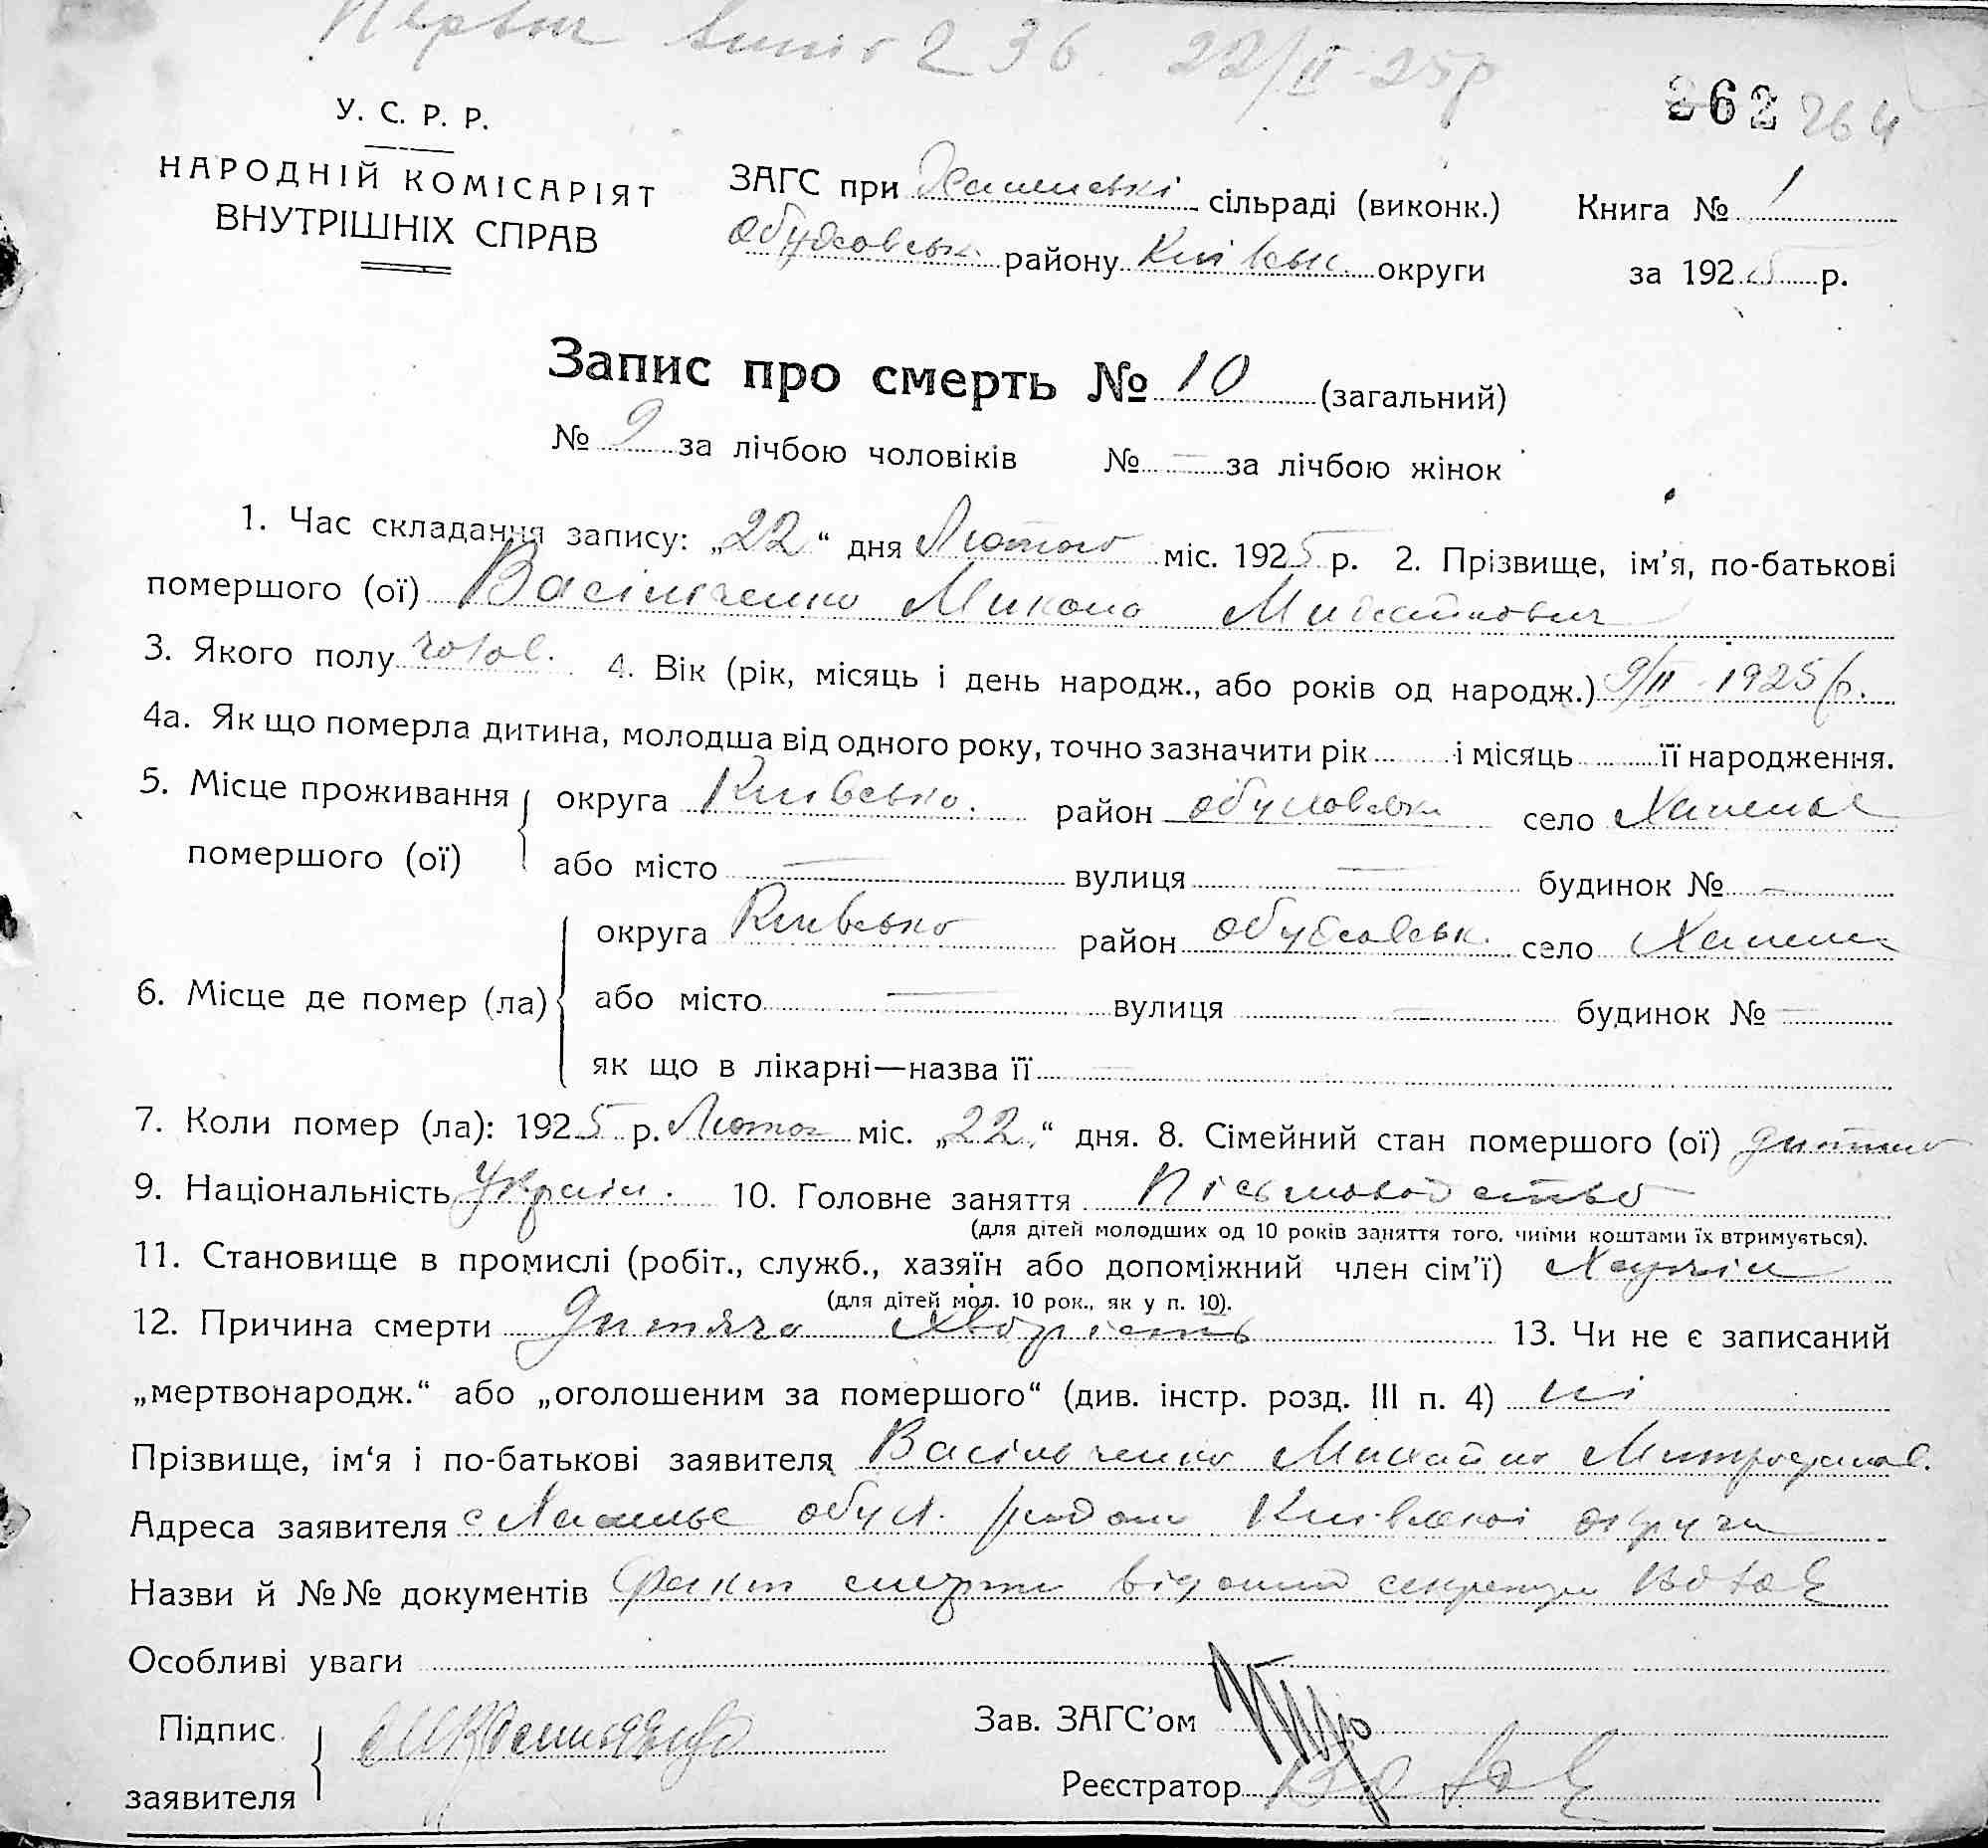 22/II-25р
262 264
У. С. Р. Р.
НАРОДНІЙ КОМІСАРІЯТ
ВНУТРІШНІХ СПРАВ
ЗАГС при сільраді (виконк.)
району Київськ. округи
Книга № 1
за 1925 р.
Запис про смерть № 10 (загальний)
№ 9 за лічбою чоловіків № — за лічбою жінок
1. Час складання запису: „22“ дня Лютого міс. 1925 р. 2. Прізвище, ім’я, по-батькові
помершого (ої) Васільченко Микола Михайлович
3. Якого полу чолов. 4. Вік (рік, місяць і день народж., або років од народж.) 9/II-1925 р.
4а. Як що померла дитина, молодша від одного року, точно зазначити рік і місяць її народження.
5. Місце проживання помершого (ої) округа Київсько. район село
або місто — вулиця — будинок № —
6. Місце де помер (ла) округа Київсько район село
або місто — вулиця — будинок № —
як що в лікарні—назва її —
7. Коли помер (ла): 1925 р. Лютог міс. „22“ дня. 8. Сімейний стан помершого (ої) дитина
9. Національність Україн. 10. Головне заняття
(для дітей молодших од 10 років заняття того, чиїми коштами їх втримується).
11. Становище в промислі (робіт., служб., хазяїн або допоміжний член сім’ї)
(для дітей мол. 10 рок., як у п. 10).
12. Причина смерти Дитяча хворість 13. Чи не є записаний
„мертвонародж.“ або „оголошеним за помершого“ (див. інстр. розд. III п. 4) ні
Прізвище, ім‘я і по-батькові заявителя Васільченко Михайло Митрофанов.
Адреса заявителя с район Київської округи
Назви й №№ документів Факт смерти відомий секретарю
Особливі уваги
Підпис заявителя
Зав. ЗАГС’ом
Реєстратор